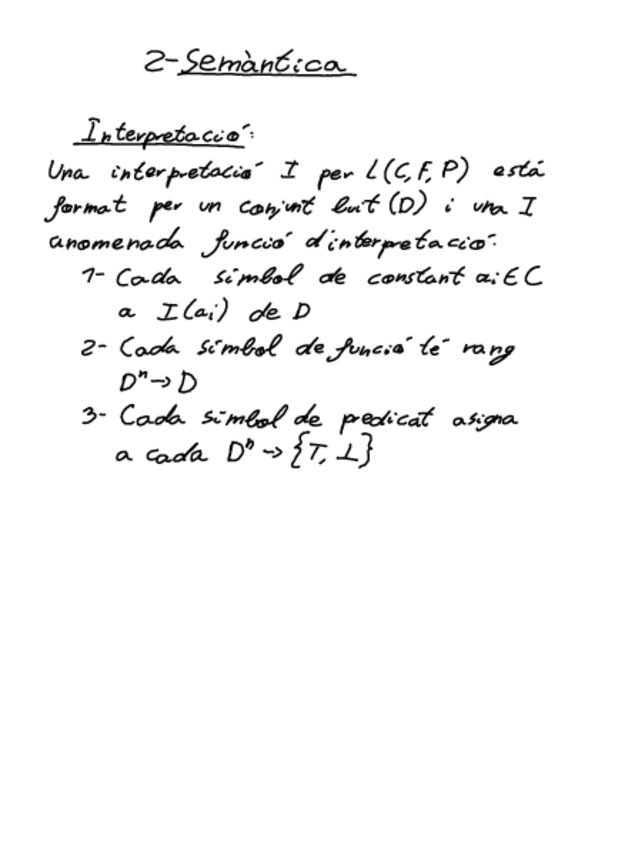 2-Semàntica
Interpretació:
Una interpretació I per L(C,F,P) está
format per un conjunt buit (D) i una I
anomenada funció d'interpretació:
1- Cada símbol de constant ai∈C
a I(ai) de D
2- Cada símbol de funció té rang
Dⁿ→D
3- Cada símbol de predicat asigna
a cada Dⁿ→{T,⊥}